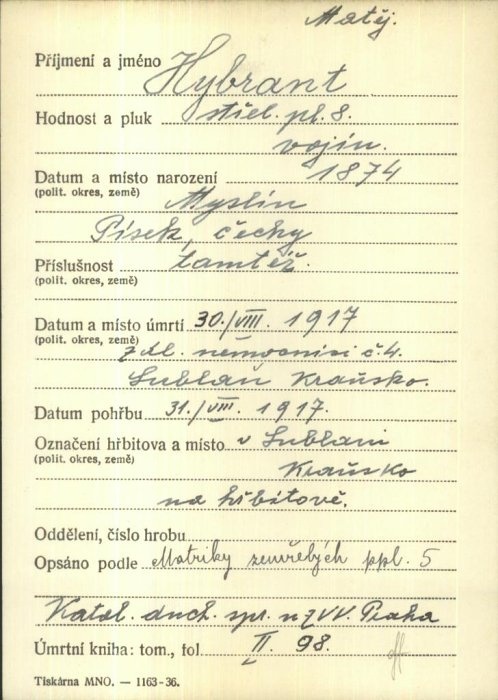 Matěj.
Příjmení a jméno Hybrant
Hodnost a pluk střel. pl. 8.
vojín.
Datum a místo narození 1874
(polit. okres, země) Myslín
Písek, čechy
Příslušnost tamtéž.
(polit. okres, země)
Datum a místo úmrtí 30./VIII. 1917
(polit. okres, země) zál. nemocnici č. 4.
Lublaň Kraňsko.
Datum pohřbu 31./VIII. 1917.
Označení hřbitova a místo v Lublani
(polit. okres, země) Kraňsko
na hřbitově.
Oddělení, číslo hrobu
Opsáno podle Matriky zemřelých ppl. 5
Katol. duch. spr. u ZVV. Praha
Úmrtní kniha: tom., fol. II. 98.
Tiskárna MNO. — 1163-36.